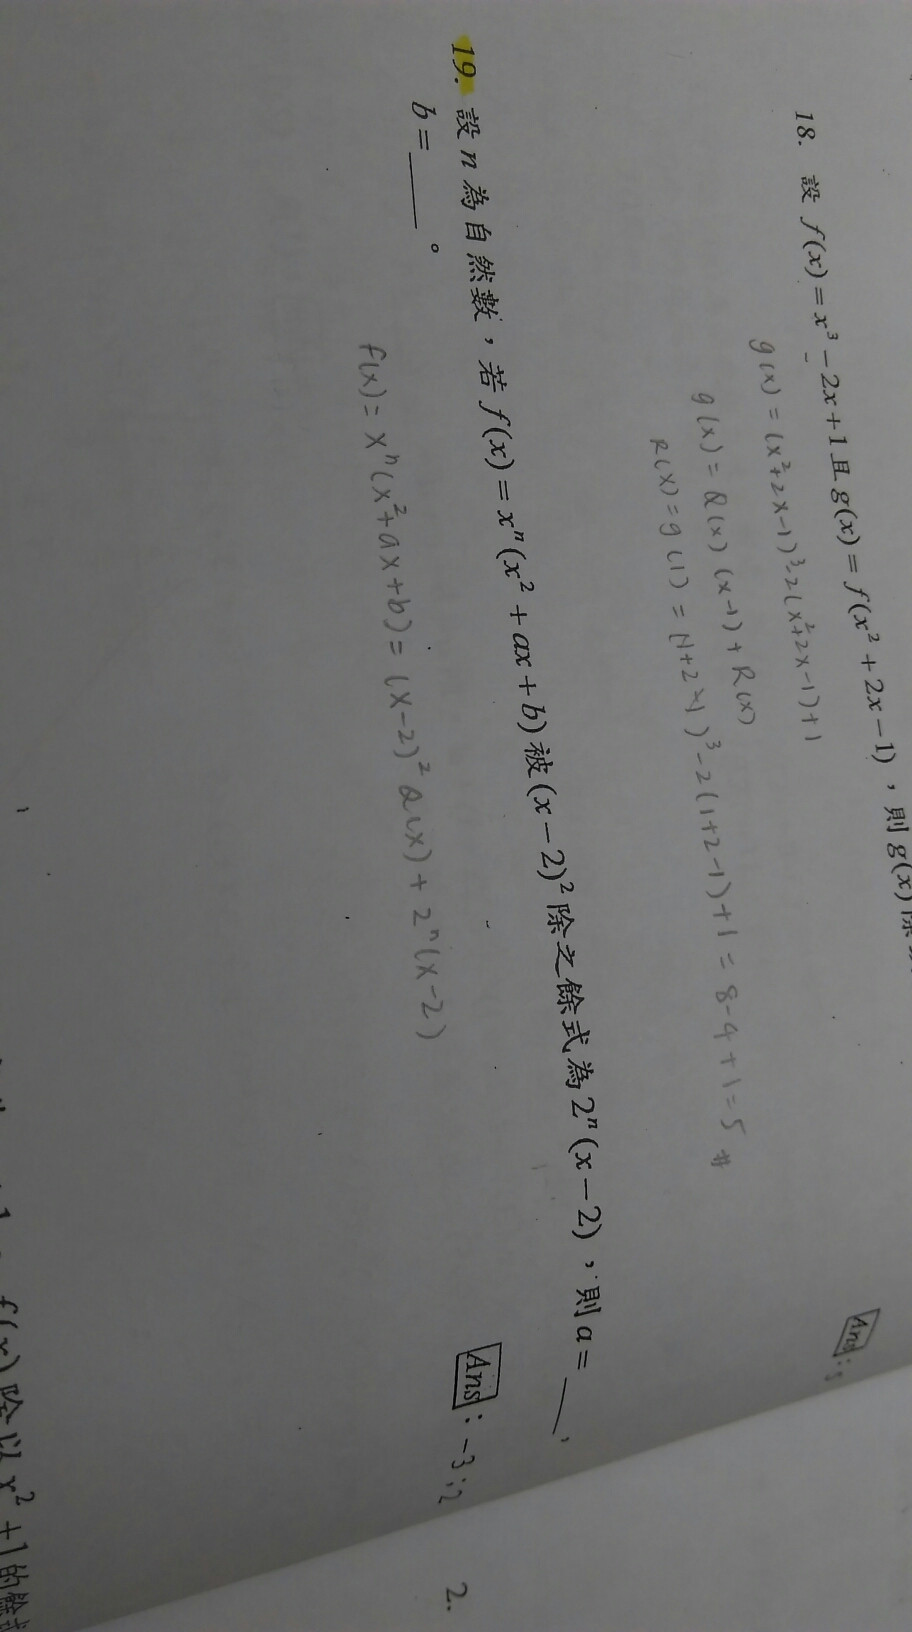 18. 設 f(x) = x³ − 2x + 1 且 g(x) = f(x² + 2x − 1)，則 g(x)
g(x) = (x²+2x-1)³-2(x²+2x-1)+1
g(x) = Q(x) (x-1) + R(x)
R(x) = g(1) = (1+2-1)³-2(1+2-1)+1 = 8-4+1=5 #
Ans:5
19. 設 n 為自然數，若 f(x) = xⁿ(x² + ax + b) 被 (x − 2)² 除之餘式為 2ⁿ(x − 2)，則 a = ____，
b = ____。
Ans: -3;2
f(x) = xⁿ(x²+ax+b) = (x-2)² Q(x) + 2ⁿ(x-2)
f(x) 除以 x² + 1 的餘式
2.